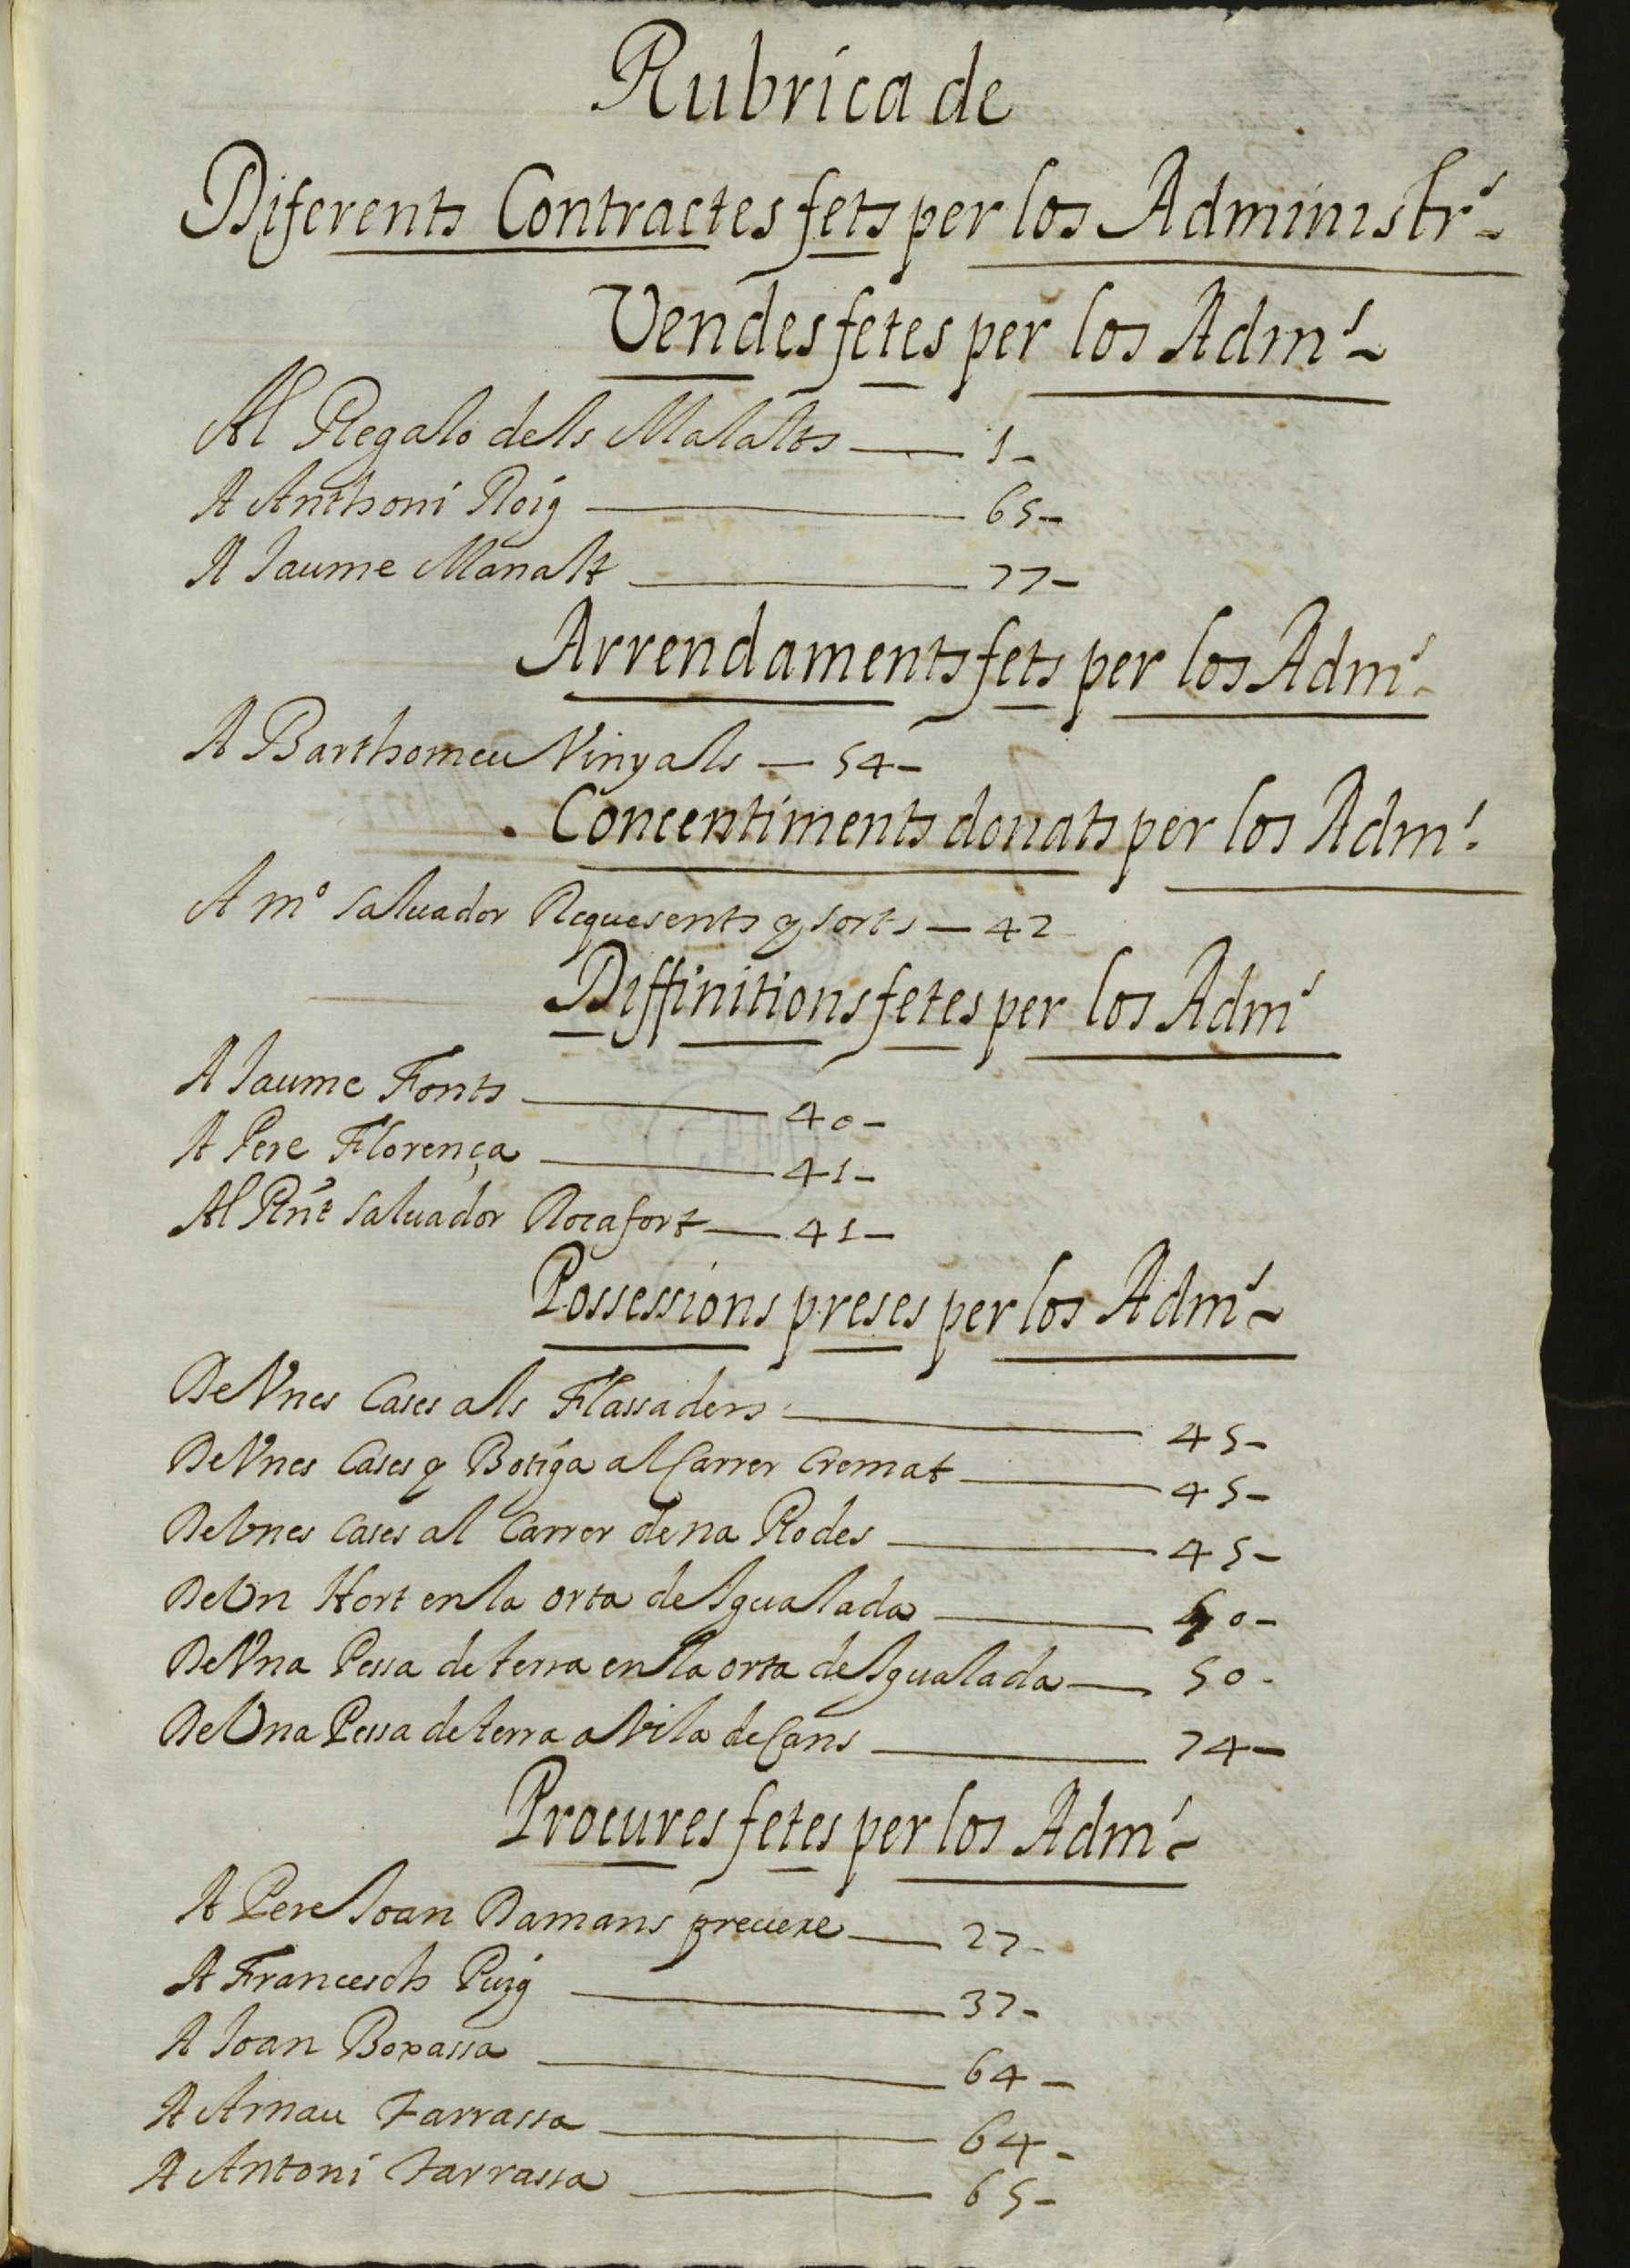 Rubrica de
Diferents Contractes fets per los Administrs
Vendes fetes per los Adms
Al Regalo dels Malalts — 1 -
A Anthoni Roig — 65 -
A Jaume Manalt — 77 -
Arrendaments fets per los Adms
A Barthomeu Vinyals — 54 -
Concentiments donats per los Adms
A mº Saluador Requesents y sorts — 42
Diffinitions fetes per los Adms
A Jaume Fonts — 40 -
A Pere Florença — 41 -
Al Rnt Saluador Rocafort — 41 -
Possessions preses per los Adms
De Vnes Cases als Flassaders — 45 -
De Vnes Cases y Botiga al Carrer Cremat — 45 -
De Vnes Cases al Carrer de na Rodes — 45 -
De Vn Hort en la orta de Igualada —
De Vna Pessa de terra en la orta de Igualada — 50 -
De Vna Pessa de terra a Vila de Cans — 74 -
Procures fetes per los Adms
A Pere Joan Damans preuere — 27 -
A Francesch Puig — 37 -
A Joan — 64 -
A Arnau Tarrassa — 64 -
A Antoni Tarrassa — 65 -